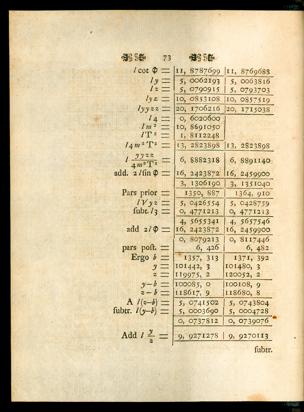 73
l cot Φ = 11, 8787699 | 11, 8769688
l y = 5, 0062193 | 5, 0063816
l z = 5, 0790915 | 5, 0793703
l yz = 10, 0853108 | 10, 0857519
l yyzz = 20, 1706216 | 20, 1715038
l 4 = 0, 6020600
l m² = 10, 8691050
l T² = 1, 8112248
l 4 m² T² = 13, 2823898 | 13, 2823898
l yyzz / 4m² T² = 6, 8882318 | 6, 8891140
add. 2 l sin Φ = 16, 2423872 | 16, 2459900
3, 1306190 | 3, 1351040
Pars prior = 1350, 887 | 1364, 910
l V yz = 5, 0426554 | 5, 0428759
subt. l 3 = 0, 4771213 | 0, 4771213
4, 5655341 | 4, 5657546
add 2 l Φ = 16, 2423872 | 16, 2459900
0, 8079213 | 0, 8117446
pars post. = 6, 426 | 6, 482
Ergo b = 1357, 313 | 1371, 392
y = 101442, 3 | 101480, 3
z = 119975, 2 | 120052, 2
y—b = 100085, 0 | 100108, 9
z—b = 118617, 9 | 118680, 8
A l (z—b) = 5, 0741502 | 5, 0743804
subtr. l (y—b) = 5, 0003690 | 5, 0004728
0, 0737812 | 0, 0739076
Add l y / z = 9, 9271278 | 9, 9270113
subtr.